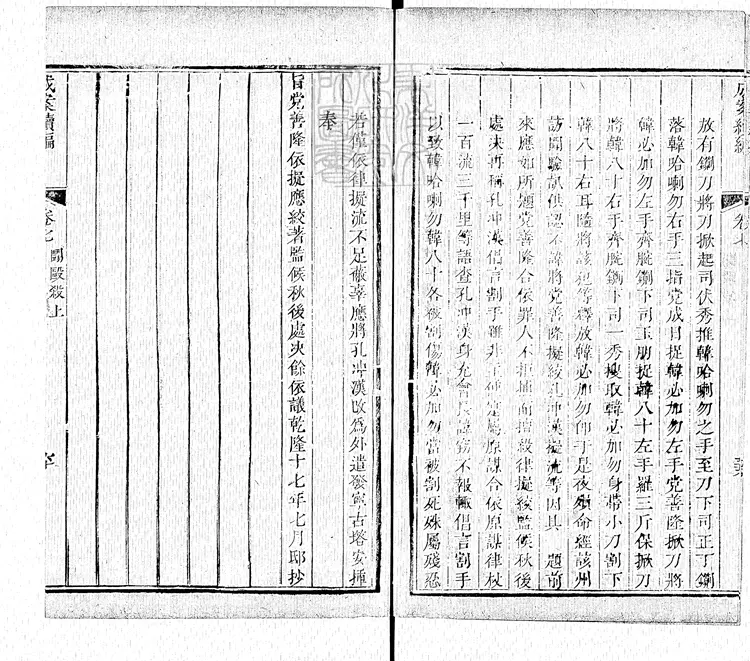 放有鍘刀將刀掀起司伏秀推韓哈喇勿之手至刀下司正了鍘
落韓哈喇勿右手三指党成日捉韓必加勿左手党善隆掀刀將
韓必加勿左手齊腕鍘下司玉朋捉韓八十左手羅三斤保掀刀
將韓八十右手齊腕鍘下司一秀搜取韓必加勿身帶小刀割下
韓八十右耳隨將該犯等釋放韓必加勿卽于是夜殞命經該州
訪聞驗訊俱認不諱將党善隆擬絞孔冲漢擬流等因具 題前
來應如所題党善隆合依罪人不拒捕而擅殺律擬絞監候秋後
處決再稱孔冲漢倡言割手雖非主使寔屬原謀合依原謀律杖
一百流三千里等語查孔冲漢身充會長竊不報輒倡言割手
以致韓哈喇勿韓八十各被割傷韓必加勿當被割死殊屬殘忍
成案續編
卷七
若僅依律擬流不足蔽辜應將孔冲漢改爲外遣發寧古塔安揷
奉
旨党善隆依擬應絞著監候秋後處決餘依議乾隆十七年七月邸抄
成案續編
卷七 鬬毆殺上